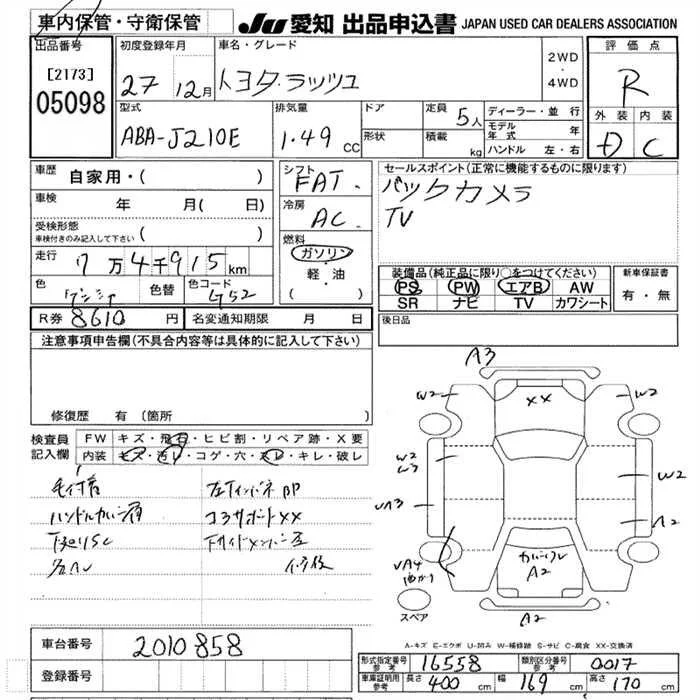 車内保管・守衛保管
JU 愛知 出品申込書 JAPAN USED CAR DEALERS ASSOCIATION
出品番号 初度登録年月 車名・グレード 2WD ・ 4WD 評価点
[2173] 05098 27 12月 トヨタ・ラッシュ R
型式 排気量 ドア 定員 5人 ディーラー・並行 外装 内装
ABA-J210E 1.49 CC 形状 積載 kg モデル年式 年 D C
ハンドル 左・右
車歴 自家用・( ) シフト FAT セールスポイント(正常に機能するものに限ります)
車検 年 月( 日) 冷房 AC バックカメラ
受検形態 ( ) TV
車検付きのみ記入して下さい
走行 7万4千915km 燃料 ガソリン 軽・油 ( )
装備品(純正品に限り○をつけてください) 新車保証書
色 色替 色コード PS PW エアB AW 有・無
SR ナビ TV カワシート
R券 8610円 名変通知期限 月 日 後日品
注意事項申告欄(不具合内容等は具体的に記入して下さい)
修復歴 有(箇所
検査員記入欄 FW キズ・飛石・ヒビ割・リペア跡・X要
内装 キズ・汚レ・コゲ・穴・スレ・キレ・破レ
ハンドル
コアサポートXX
A3
W2 XX W2
W2
W3 W2
A3 A2
A4
A2
A2
スペア
A-キズ E-エクボ U-凹み W-補修跡 S-サビ C-腐食 XX-交換済
車台番号 2010858
登録番号
形式指定番号 参考 16558 類別区分番号 参考 0017
車庫証明用 参考 長さ 400 cm 幅 169 cm 高さ 170 cm